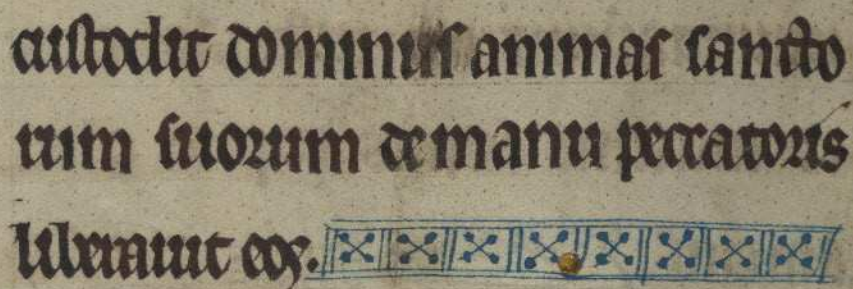 custodit dominus animas sancto
rum suorum de manu peccatoris
liberauit eoꝫ.